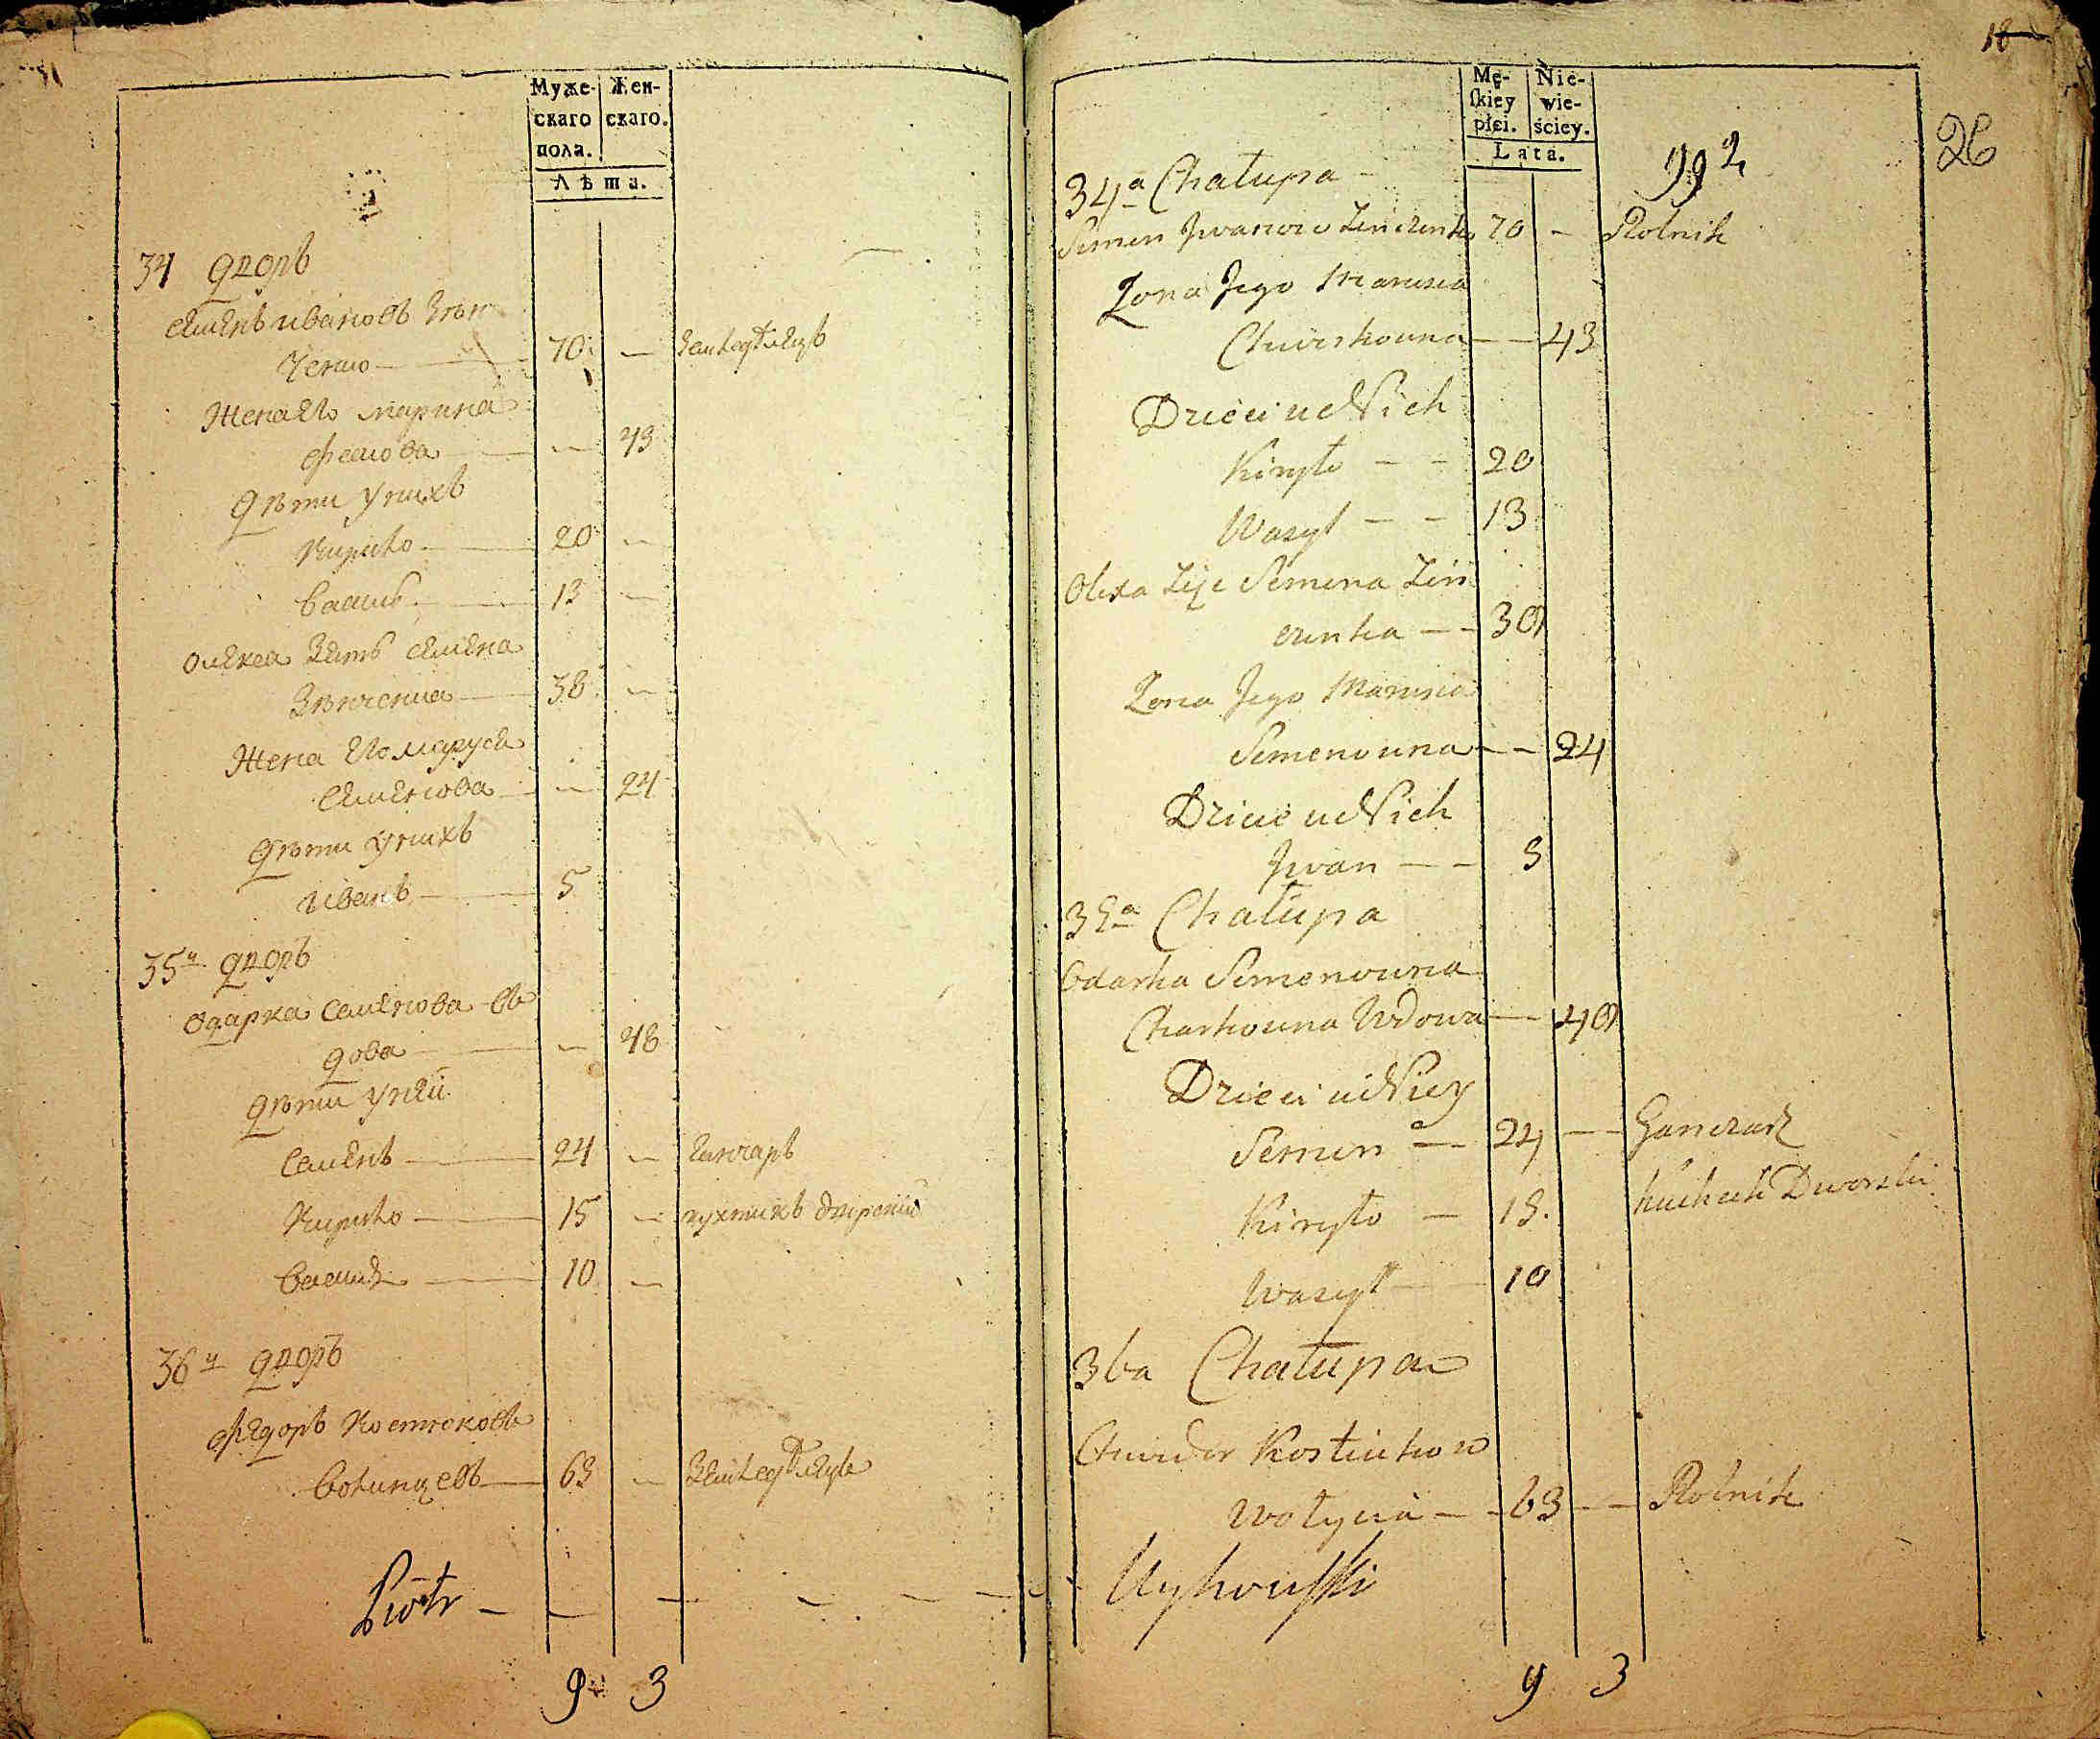 Муже-
скаго
пола.
Жен-
скаго.
Лѣта.
34 дворъ
Семенъ Ивановъ Зѣн
ченко — 70 — Земледѣлецъ
Жена Его Марина
— 43
Дѣти у нихъ
Кирило — 20 —
Василь — 13 —
Олекса Зять Семена
Зѣнченка — 38 —
Жена Его Маруся
Семенова — — 24
Дѣти у нихъ
Иванъ — 5
35й дворъ
Одарка Семенова в
дова — — 48
Дѣти у ней
Семенъ — 24 — Ганчаръ
Кирило — 15 — кухтикъ дворскій
Василь — 10 —
36й дворъ
Федоръ Костюковъ
63 — Земледѣлецъ
Piotr — — — — — — —
9 3
18
26
Mę-
ſkiey
płci.
Nie-
wie-
ściey.
Lata.
992
34a Chałupa —
Semen Jwanow Zinczenko 70 — Rolnik
Żona Jego Marusia
— — 43
Dzieci u Nich
Kiryło — — 20
Wasyl — — 13
Olexa Zięć Semena Zin
czenka — — 38
Żona Jego Marusia
Semenowna — — 24
Dzieci u Nich
Jwan — — 5
35a Chałupa
Odarka Semenowna
Charkowna Wdowa — 48
Dzieci u Niey
Semen — 24 — Ganczarz
Kiryło — 15. Kuchcik Dworski
Wasyl — 10
36a Chałupa
Chwedor Kostiukow
63 — — Rolnik
9 3